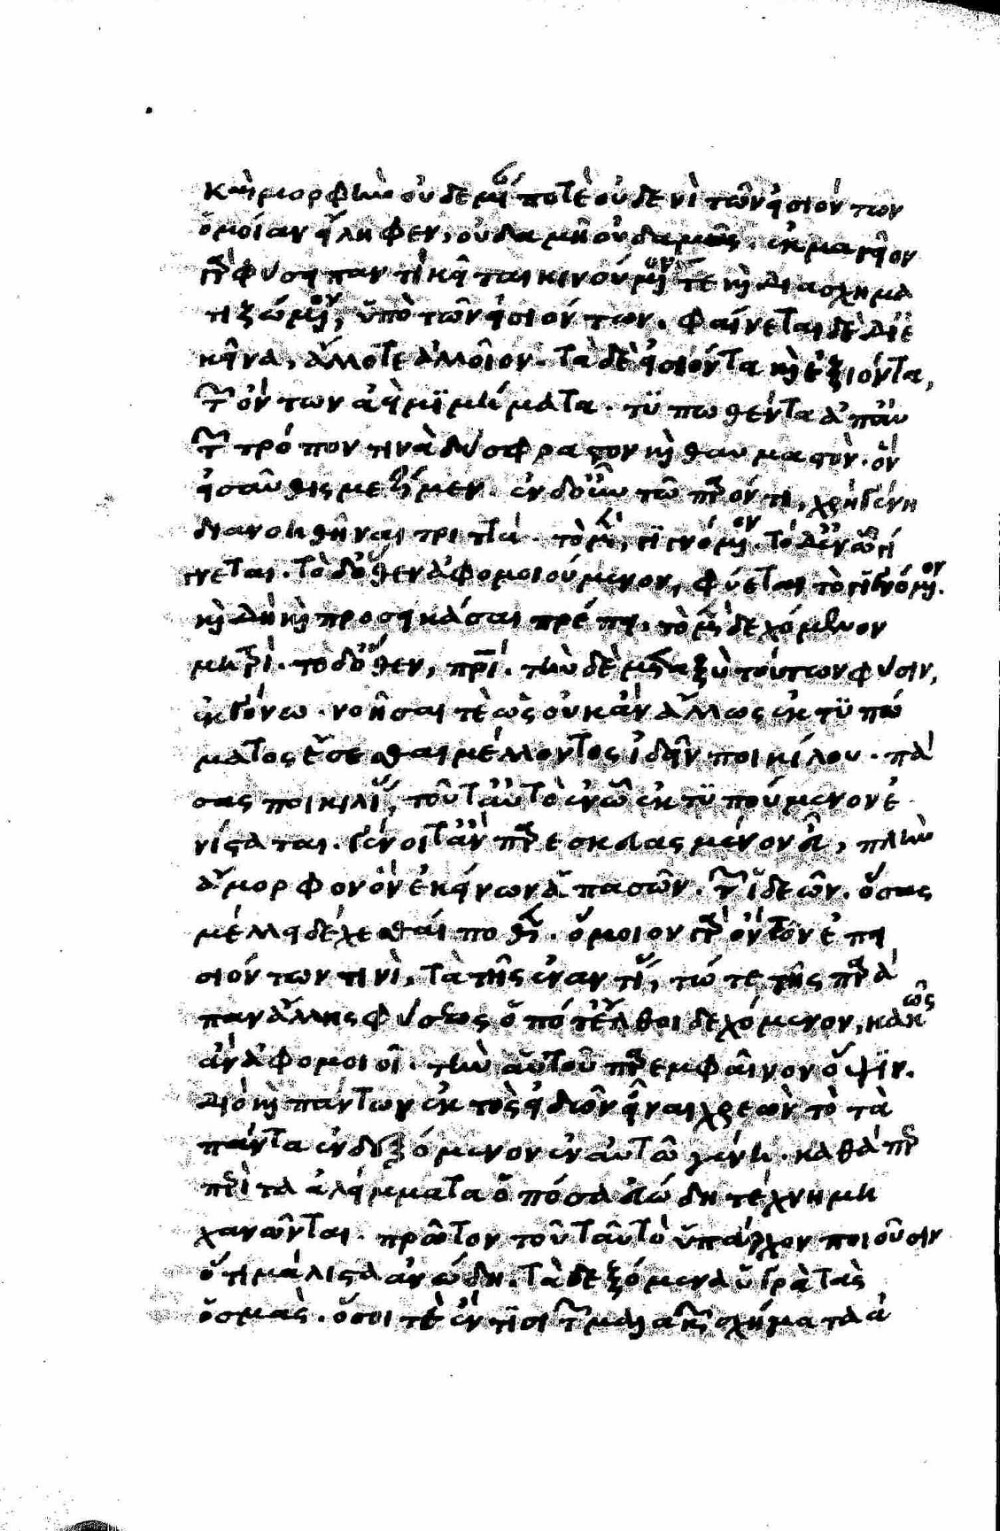 καὶ μορφὴν οὐδεμίαν ποτὲ οὐδενὶ τῶν εἰσιόντων
ὁμοίαν εἴληφεν, οὐδαμῆ οὐδαμῶς. ἐκμαγεῖον
γὰρ φύσει παντὶ κεῖται κινούμενόν τε καὶ διασχημα
τιζόμενον, ὑπὸ τῶν εἰσιόντων. φαίνεται δὲ δι' ἐ
κεῖνα, ἄλλοτε ἀλλοῖον. τὰ δὲ εἰσιόντα καὶ ἐξιόντα,
τῶν ὄντων ἀεὶ μιμήματα. τυπωθέντα ἀπ' αὐ
τῶν τρόπον τινὰ δύσφραστον καὶ θαυμαστὸν. ὃν
εἰσαῦθις μέτιμεν. ἐν δ' οὖν τῶ παρόντι, χρὴ γένη
διανοηθῆναι τριττά. τὸ μὲν, γινόμενον. τὸ δ' ἐν ᾧ γί
νεται. τὸ δ' ὅθεν ἀφομοιούμενον, φύεται τὸ γιγνόμενον.
καὶ δὴ καὶ προσεικάσαι πρέπει, τὸ μὲν δεχόμενον
μητρὶ. τὸ δ' ὅθεν, πατρί. τὴν δὲ μεταξὺ τούτων φύσιν,
ἐκγόνω. νοῆσαί τε ὡς οὐκ ἂν ἄλλως ἐκτυπώ
ματος ἔσεσθαι μέλλοντος ἰδεῖν ποικίλου. πά
σας ποικιλίας, τοῦτ' αὐτὸ ἐν ᾧ ἐκτυπούμενον ἐ
νίσταται. γένοιτ' ἂν παρεσκευασμένον εὖ, πλὴν
ἄμορφον ὂν ἐκείνων ἁπασῶν. τῶν ἰδεῶν. ὅσας
μέλλει δέχεσθαί ποθεν. ὅμοιον γὰρ ὂν τῶν ἐπει
σιόντων τινὶ, τὰ τῆς ἐναντίας, τά τε τῆς παρά
παν ἄλλης φύσεως ὁπότ' ἔλθοι δεχόμενον, κακῶς
ἂν ἀφομοιοῖ. τὴν αὑτοῦ παρεμφαῖνον ὄψιν.
διὸ καὶ πάντων ἐκτὸς εἰδῶν εἶναι χρεὼν τὸ τὰ
πάντα ἐνδεξόμενον ἐν αὑτῶ γένη. καθάπερ
περὶ τὰ ἀλείμματα ὁπόσα εὐώδη τέχνη μη
χανῶνται. πρῶτον τοῦτ' αὐτὸ ὑπάρχον ποιοῦσιν
ὅτι μάλιστα ἀνώδη. τὰ δεξόμενα ὑγρὰ τὰς
ὀσμὰς. ὅσοι τὲ ἔν τισι τῶν μαλακῶν σχήματα ἀ